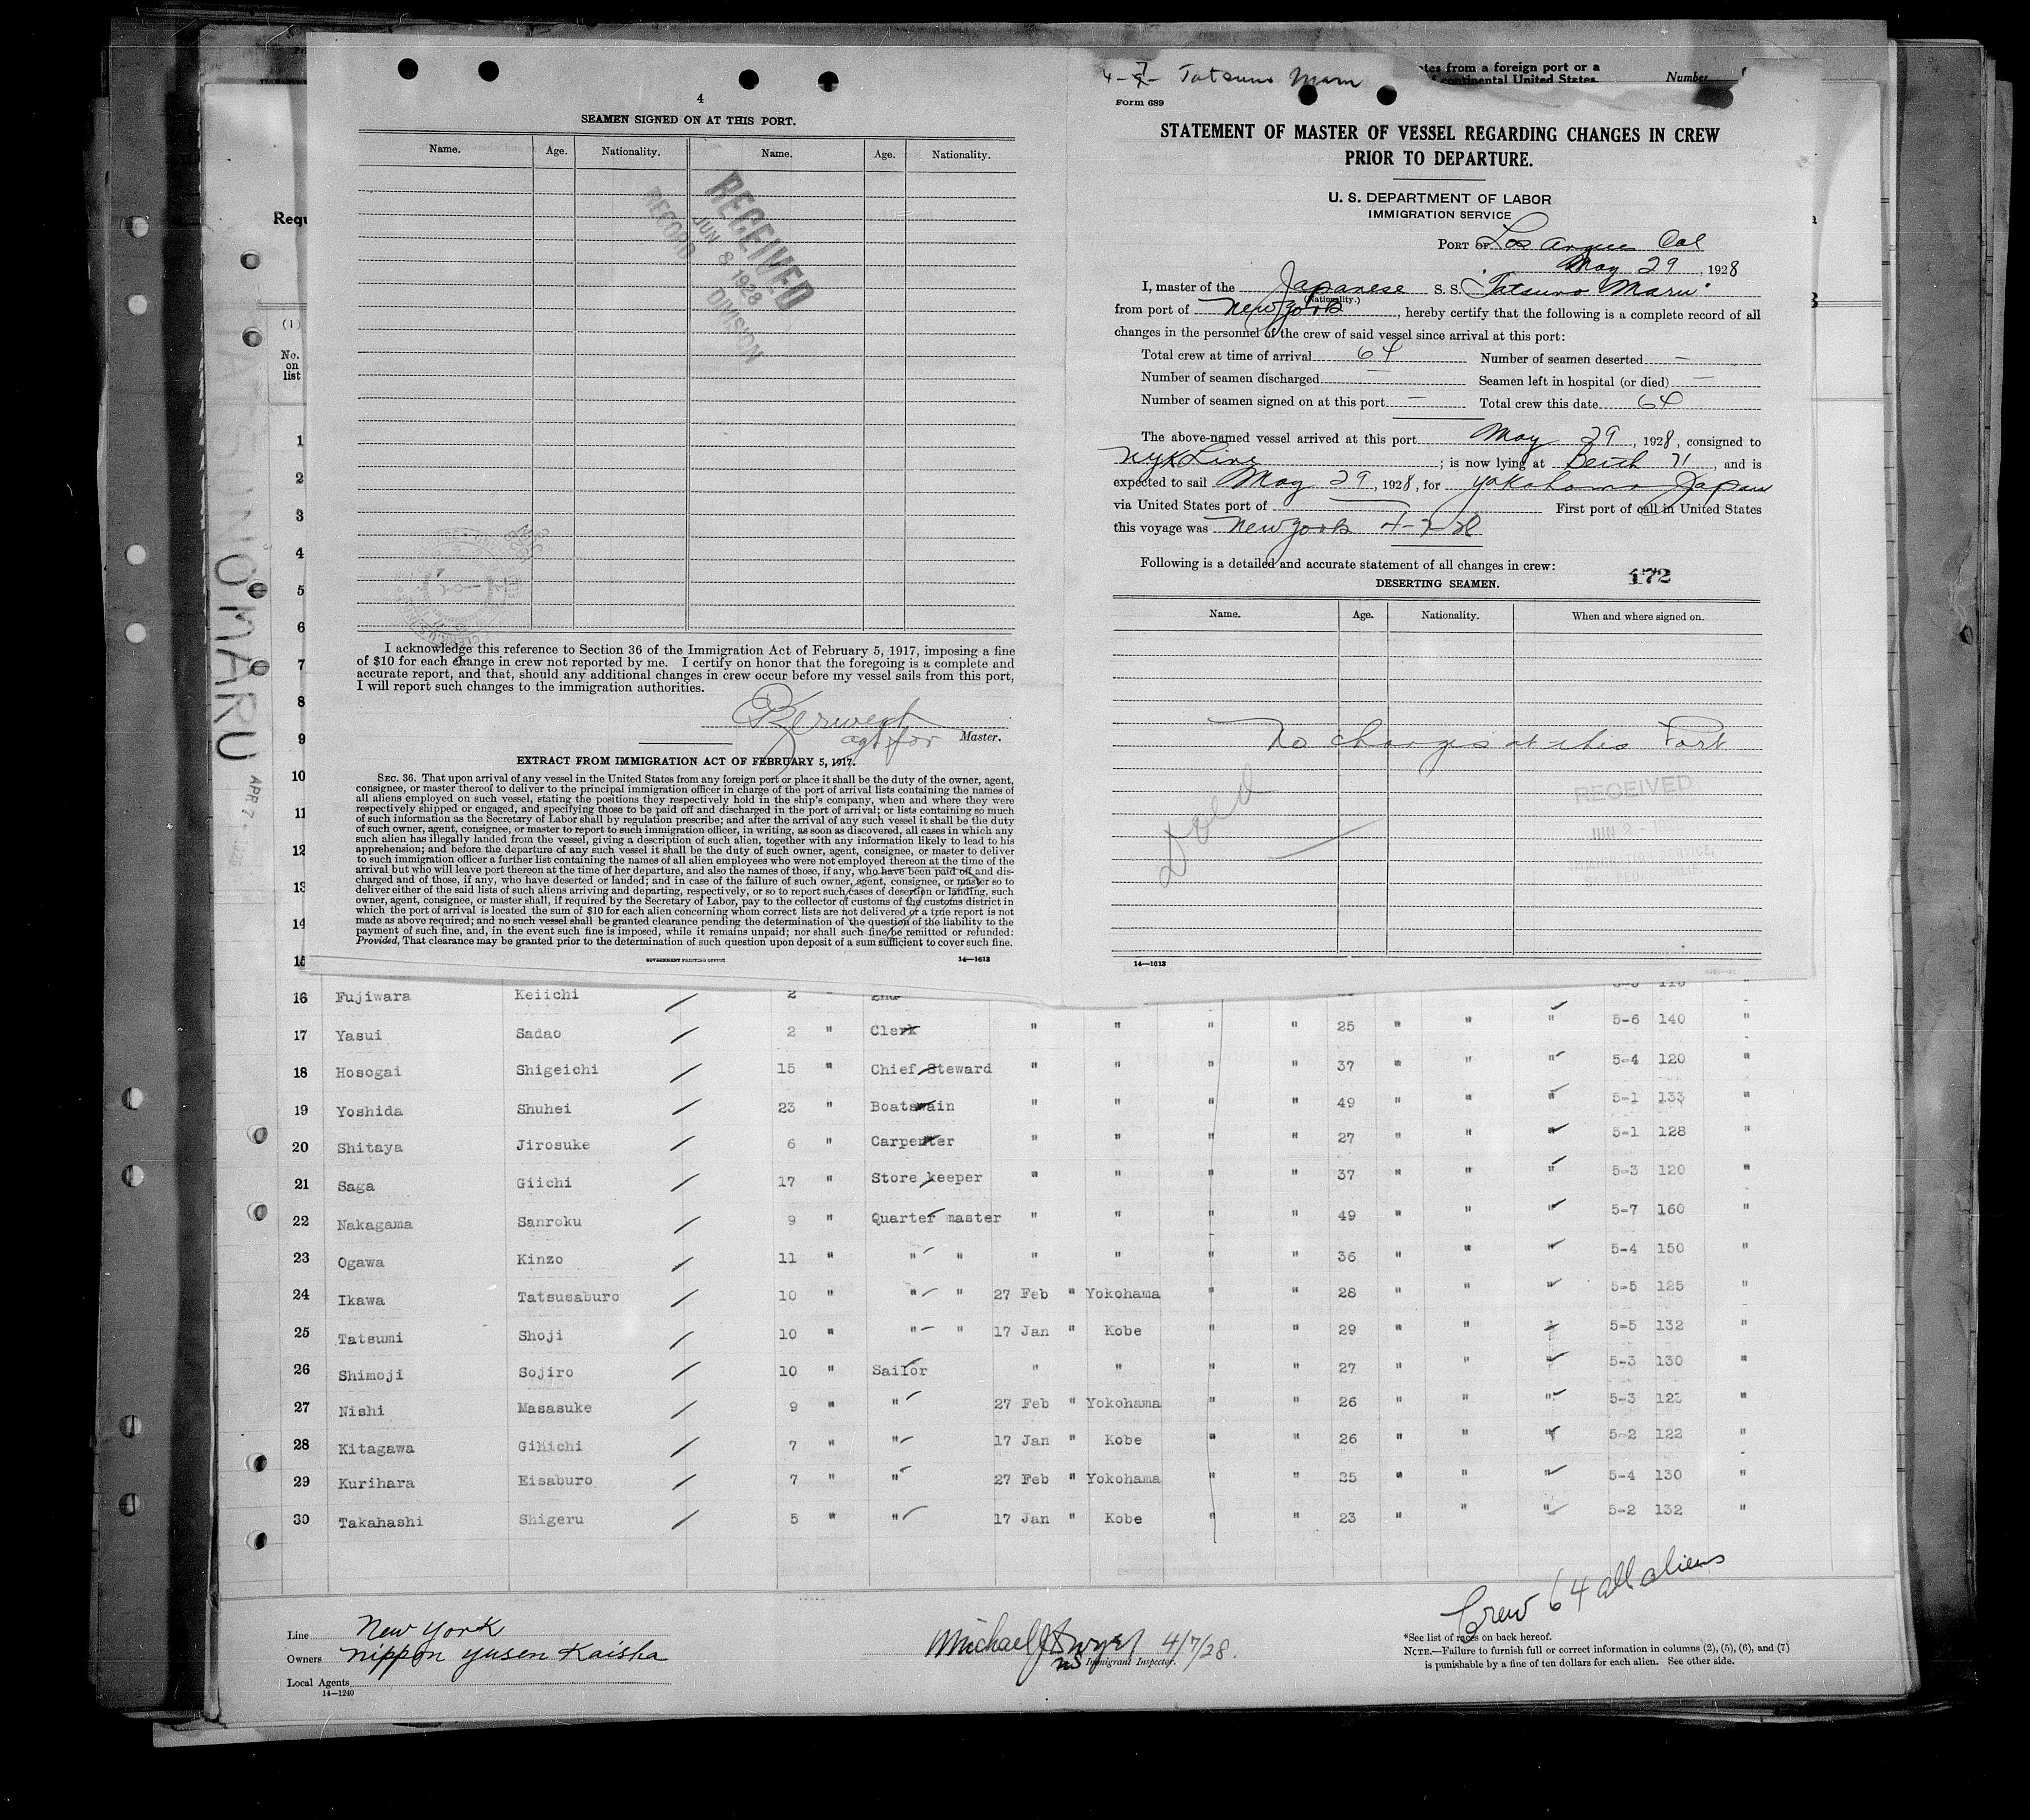 4
SEAMEN SIGNED ON AT THIS PORT.
Name. Age. Nationality. Name. Age. Nationality.
RECEIVED
JUN 8 1928
RECORD DIVISION
I acknowledge this reference to Section 36 of the Immigration Act of February 5, 1917, imposing a fine
of $10 for each change in crew not reported by me. I certify on honor that the foregoing is a complete and
accurate report, and that, should any additional changes in crew occur before my vessel sails from this port,
I will report such changes to the immigration authorities.
agt for Master.
EXTRACT FROM IMMIGRATION ACT OF FEBRUARY 5, 1917.
SEC. 36. That upon arrival of any vessel in the United States from any foreign port or place it shall be the duty of the owner, agent,
consignee, or master thereof to deliver to the principal immigration officer in charge of the port of arrival lists containing the names of
all aliens employed on such vessel, stating the positions they respectively hold in the ship's company, when and where they were
respectively shipped or engaged, and specifying those to be paid off and discharged in the port of arrival; or lists containing so much
of such information as the Secretary of Labor shall by regulation prescribe; and after the arrival of any such vessel it shall be the duty
of such owner, agent, consignee, or master to report to such immigration officer, in writing, as soon as discovered, all cases in which any
such alien has illegally landed from the vessel, giving a description of such alien, together with any information likely to lead to his
apprehension; and before the departure of any such vessel it shall be the duty of such owner, agent, consignee, or master to deliver
to such immigration officer a further list containing the names of all alien employees who were not employed thereon at the time of the
arrival but who will leave port thereon at the time of her departure, and also the names of those, if any, who have been paid off and dis-
charged and of those, if any, who have deserted or landed; and in case of the failure of such owner, agent, consignee, or master so to
deliver either of the said lists of such aliens arriving and departing, respectively, or so to report such cases of desertion or landing, such
owner, agent, consignee, or master shall, if required by the Secretary of Labor, pay to the collector of customs of the customs district in
which the port of arrival is located the sum of $10 for each alien concerning whom correct lists are not delivered or a true report is not
made as above required; and no such vessel shall be granted clearance pending the determination of the question of the liability to the
payment of such fine, and, in the event such fine is imposed, while it remains unpaid; nor shall such fine be remitted or refunded:
Provided, That clearance may be granted prior to the determination of such question upon deposit of a sum sufficient to cover such fine.
GOVERNMENT PRINTING OFFICE 14—1613
4-7- Tatsuno Maru
tes from a foreign port or a
continental United States. Number
Form 689
STATEMENT OF MASTER OF VESSEL REGARDING CHANGES IN CREW
PRIOR TO DEPARTURE.
U. S. DEPARTMENT OF LABOR
IMMIGRATION SERVICE
PORT OF Los Angeles Cal
May 29, 1928
I, master of the Japanese S. S. "Tatsuno Maru"
(Nationality.)
from port of New York, hereby certify that the following is a complete record of all
changes in the personnel of the crew of said vessel since arrival at this port:
Total crew at time of arrival 64 Number of seamen deserted —
Number of seamen discharged — Seamen left in hospital (or died) —
Number of seamen signed on at this port — Total crew this date 64
The above-named vessel arrived at this port May 29, 1928, consigned to
NYK Line; is now lying at Berth 71, and is
expected to sail May 29, 1928, for Yokohama Japan
via United States port of —— First port of call in United States
this voyage was New York 4-7-28
Following is a detailed and accurate statement of all changes in crew:
172
DESERTING SEAMEN.
Name. Age. Nationality. When and where signed on.
No changes at this Port
RECEIVED
14—1613
Requ
(1)
No.
on
list
TATSUNO MARU
APR 7 - 1928
1
2
3
4
5
6
7
8
9
10
11
12
13
14
15
16 Fujiwara Keiichi 2 "
17 Yasui Sadao 2 " Clerk " " " " 25 " " " 5-6 140 "
18 Hosogai Shigeichi 15 " Chief Steward " " " " 37 " " " 5-4 120 "
19 Yoshida Shuhei 23 " Boatswain " " " " 49 " " " 5-1 133 "
20 Shitaya Jirosuke 6 " Carpenter " " " " 27 " " " 5-1 128 "
21 Saga Giichi 17 " Store keeper " " " " 37 " " " 5-3 120 "
22 Nakagama Sanroku 9 " Quarter master " " " " 49 " " " 5-7 160 "
23 Ogawa Kinzo 11 " " " " " " " 36 " " " 5-4 150 "
24 Ikawa Tatsusaburo 10 " " " 27 Feb " Yokohama " " 28 " " " 5-5 125 "
25 Tatsumi Shoji 10 " " " 17 Jan " Kobe " " 29 " " " 5-5 132 "
26 Shimoji Sojiro 10 " Sailor " " " " 27 " " " 5-3 130 "
27 Nishi Masasuke 9 " " 27 Feb " Yokohama " " 26 " " " 5-3 123 "
28 Kitagawa Giichi 7 " " 17 Jan " Kobe " " 26 " " " 5-2 122 "
29 Kurihara Eisaburo 7 " " 27 Feb " Yokohama " " 25 " " " 5-4 130 "
30 Takahashi Shigeru 5 " " 17 Jan " Kobe " " 23 " " " 5-2 132 "
Crew 64 all aliens
Line New York
Owners Nippon Yusen Kaisha
Local Agents
14—1240
Michael J. Dwyer 4/7/28.
Immigrant Inspector.
*See list of races on back hereof.
NOTE.—Failure to furnish full or correct information in columns (2), (5), (6), and (7)
is punishable by a fine of ten dollars for each alien. See other side.